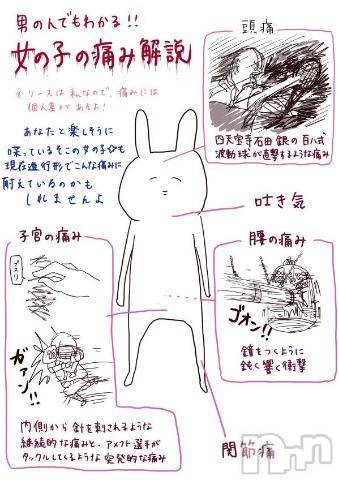 男の人でもわかる!!
女の子の痛み解説
※ソースは私なので、痛みには
個人差があるよ!
あなたと楽しそうに
喋っているそこの女の子も
現在進行形でこんな痛みに
耐えているのかも
しれませんよ
頭痛
四天宝寺石田銀の百八式
波動球が直撃するような痛み
吐き気
子宮の痛み
ブスリ
ガァン!!
内側から針を刺されるような
継続的な痛みと、アメフト選手が
タックルしてくるような突発的な痛み
腰の痛み
ゴオン!!
鐘をつくように
鈍く響く衝撃
関節痛